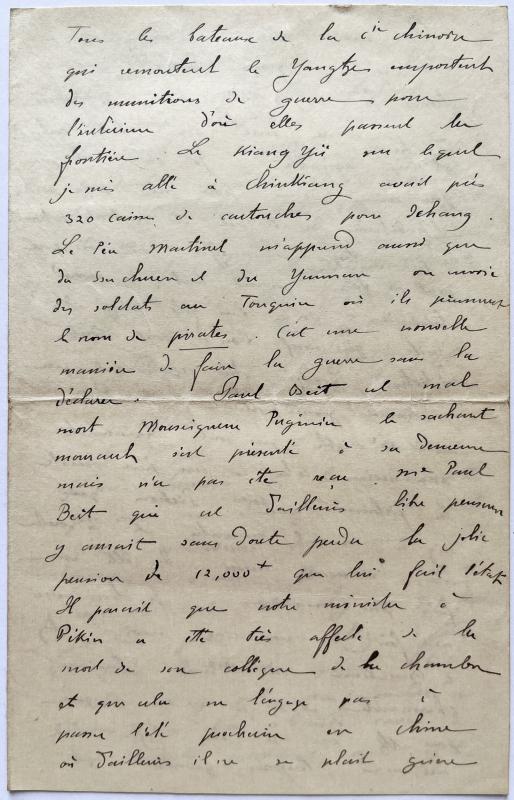 Tous les bateaux de la Cie chinoise
qui remontent le Yangtze emportent
des munitions de guerre pour
l'intérieur d'où elles passent la
frontière. Le Kiang Yü sur lequel
je suis allé à Chinkiang avait pris
320 caisses de cartouches pour Ichang.
Le Père Martinet m'apprend aussi que
du Suchuen et du Yunnan on envoie
des soldats au Tonquin où ils prennent
le nom de pirates. C'est une nouvelle
manière de faire la guerre sans la
déclarer. Paul Bert est mal
mort Monseigneur Puginier le sachant
mourant s'est présenté à sa demeure
mais n'a pas été reçu. Mme Paul
Bert qui est d'ailleurs libre penseuse
y aurait sans doute perdu la jolie
pension de 12,000 f que lui fait l'état
Il parait que notre ministre à
Pékin a été très affecté de la
mort de son collègue de la chambre
et que cela ne l'engage pas à
passer l'été prochain en Chine
où d'ailleurs il ne se plait guère